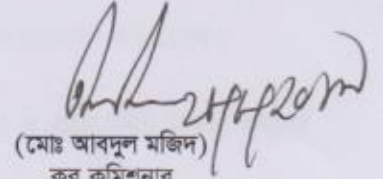 (মোঃ আবদুল মজিদ)
কর কমিশনার